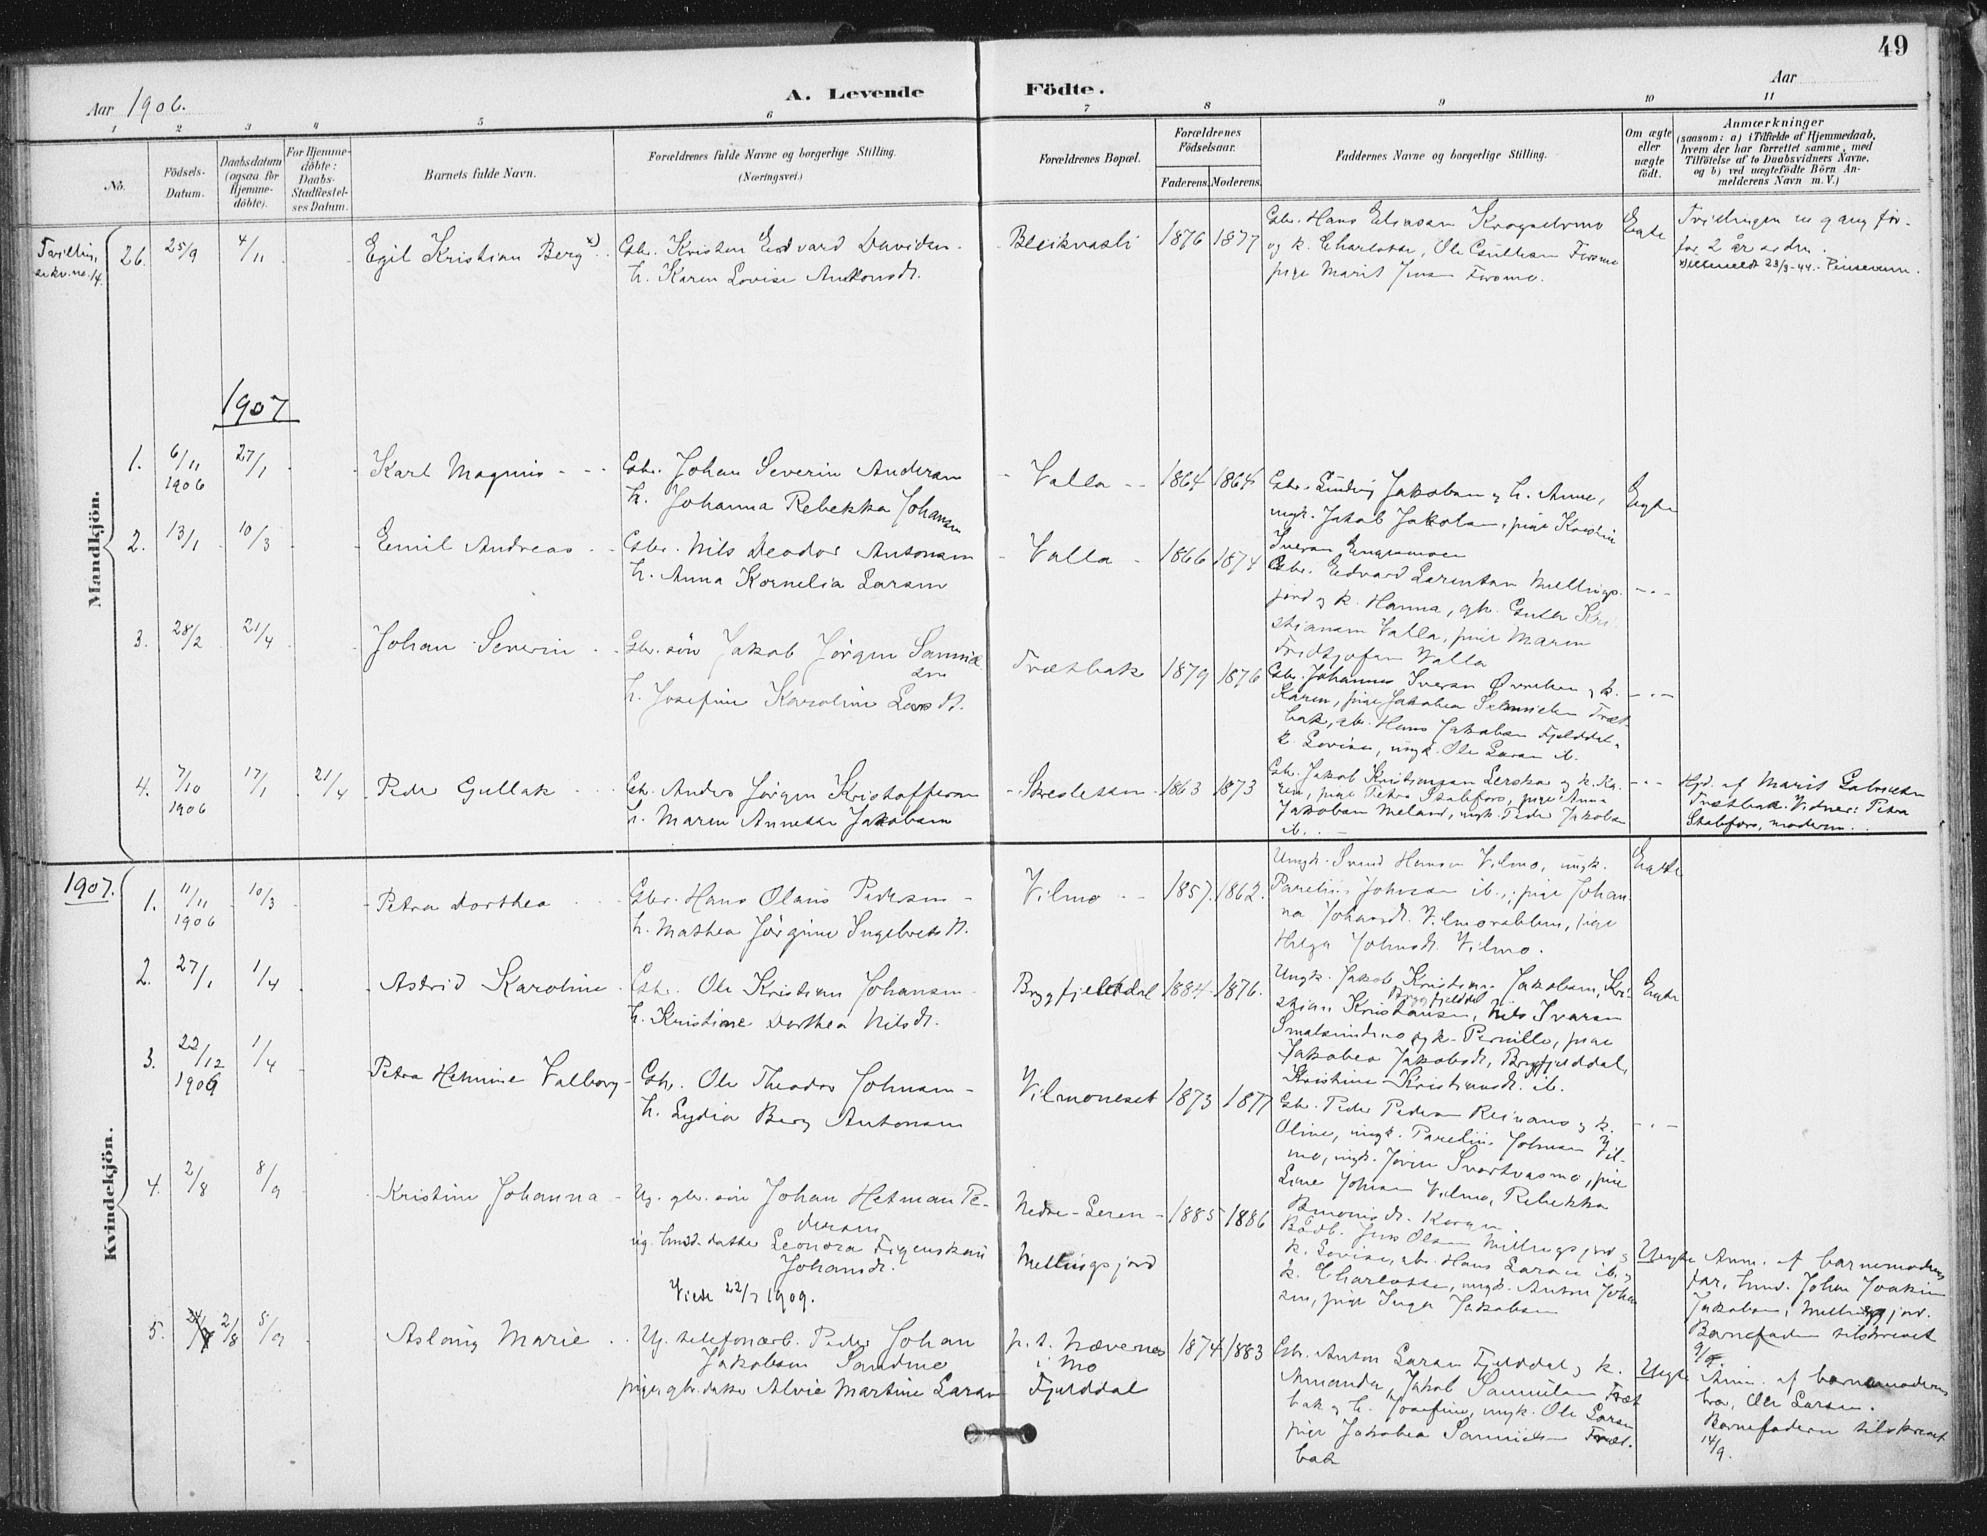 49
Aar 1906.
A. Levende
Födte.
Aar
1 2 3 4 5 6 7 8 9 10 11
No.
Födsels-
Datum.
Daabsdatum
(ogsaa for
Hjemme-
döbte).
For Hjemme-
döbte:
Daabs-
Stadfæstel-
ses Datum.
Barnets fulde Navn.
Forældrenes fulde Navne og borgerlige Stilling.
(Næringsvei.)
Forældrenes Bopæl.
Forældrenes
Födselsaar.
Faderens. Moderens.
Faddernes Navne og borgerlige Stilling.
Om ægte
eller
uægte
födt.
Anmærkninger
(saasom: a) i Tilfælde af Hjemmedaab,
hvem der har forrettet samme, med
Tilföielse af to Daabsvidners Navne.
og b) ved uægtefödte Börn An-
melderens Navn m. V.)
Mandkjön.
26. 25/9 4/11 Egil Kristian Berg
Gbr. Kristen Edvard Davidsen
h. Karen Lovise Antonsdt.
Bleikvasli 1876 1877
Gbr. Hans Eliasen Krogselvmo
og k. Charlotte, Ole
pige Marit Jensen
Ægte
Tvillingen
for 2 år siden.
1907
1. 6/11 1906 27/1 Karl Magnus
Gbr. Johan Severin Andersen
h. Johanna Rebekka Johansen
Valla 1864 1864
Gbr. Ludvig Jakobsen og h. Anne,
ungk. Jakob Jakobsen, pige Karolin
Iversen
Ægte
2. 13/1 10/3 Emil Andreas
Gbr. Nils Deodor Antonsen
h. Anna Kornelia Larsen
Valla 1866 1874
Gbr. Edvard Larentsen Mellings-
jord og k. Hanna, gk. Kri-
stiansen Valla, pige Maren
Fridtjofsen Valla
3. 28/2 21/4 Johan Severin
Gbr. søn Jakob Jørgen Samuel
sen
h. Josefine Karoline Larsdt.
Trætbak 1879 1876
Gbr. Johannes Iversen og k.
Karen, pige Jakobea Samuelsen Træt-
bak, gbr. Hans Jakobsen Fjelddal,
k. Lovise, ungk. Ole Larsen ib.
4. 7/10 1906 17/1 21/4 Peder Gullak
Gbr. Anders Jørgen Kristoffersen
h. Maren Annesse Jakobsen
1863 1873
Gbr. Jakob Kristiansen og k. Ka-
ren, pige Petra Stabfors, pige Anna
Jakobsen Meland, ungk. Peder Jakobsen
ib.
Hjd. af Marit Gabrielsen
Trætbak. Vidner: Petra
Stabfors, moderen.
1907.
Kvindekjön.
1. 11/11 1906 10/3 Petra Dorthea
Gbr. Hans Olaus Pedersen
h. Mathea Jørgine Ingebretsdt.
Vilmo 1857. 1862.
Ungk. Hansen Vilmo, ungk.
Parelius Johnsen ib., pige Johan
na Johansdt. Vilmorabben, pige
Helga Johnsdt. Vilmo.
Ægte
2. 27/1 1/4 Astrid Karoline
Gbr. Ole Kristian Johansen
h. Kristine Dorthea Nilsdt.
Brygfjelddal 1884 1876.
Ungk. Jakob Kristian Jakobsen, Kri-
stian Kristiansen, Brygfjelddal Nils Ivarsen
og k. Pernille, pige
Jakobea Jakobsdt. Brygfjelddal,
Kristine Kristiansdt. ib.
Ægte
3. 22/12 1906 1/4 Petra Helmine Valborg
Gbr. Ole Theodor Johnsen
h. Lydia Berg Antonsen
Vilmoneset 1873 1877
Gbr. Peder Pedersen og k.
Oline, ungk. Parelius Johnsen Vil-
mo, ungk. Svartvasmo, pige
Line Johnsen Vilmo, Rebekka
Korgen.
4. 2/8 8/9 Kristine Johanna
Ug. gbr. søn Johan Hetman Pe-
dersen
ug. datter Leonora Figenskau
Johansdt.
Viede 22/7 1909.
Nedre-Leren 1885 1886
Mellingsjord
Jens Olsen Mellingsjord og
k. Lovise, gbr. Hans Larsen ib. og
k. Charlotte, ungk. Anton Johan
sen, pige Inga Jakobsen
Uægte
Anm. af barnemoderens
far, Johan Joakim
Jakobsen, Mellingsjord.
Barnefaderen tilskrevet
9/9.
5. 2/8 5/9 Aslaug Marie
Ug. telefonarb. Peder Johan
Jakobsen
pige, gbr. datter Alvie Martine Larsen
p.t. Nævernes
i Mo
Fjelddal
1874 1883
Gbr. Anton Larsen Fjelddal og k.
Amanda, Jakob Samuelsen Træt
bak og h. Josefine, ungk. Ole Larsen
pige Jakobea Samuelsen Træt-
bak
Uægte
Anm. af barnemoderens
bror, Ole Larsen.
Barnefaderen tilskrevet
14/9.